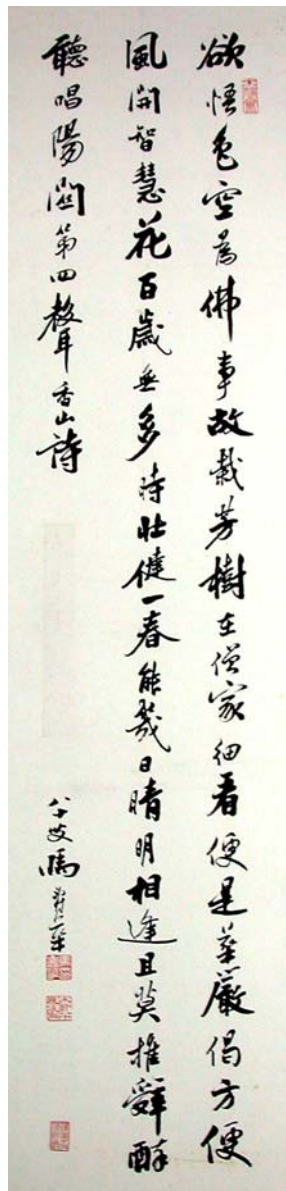 欲悟色空為佛事故栽芳樹在僧家細看便是華嚴偈方便
風開智慧花百歲無多時壯健一春能幾日晴明相逢且莫推辭醉
聽唱陽關第四聲香山詩
八十叟馮